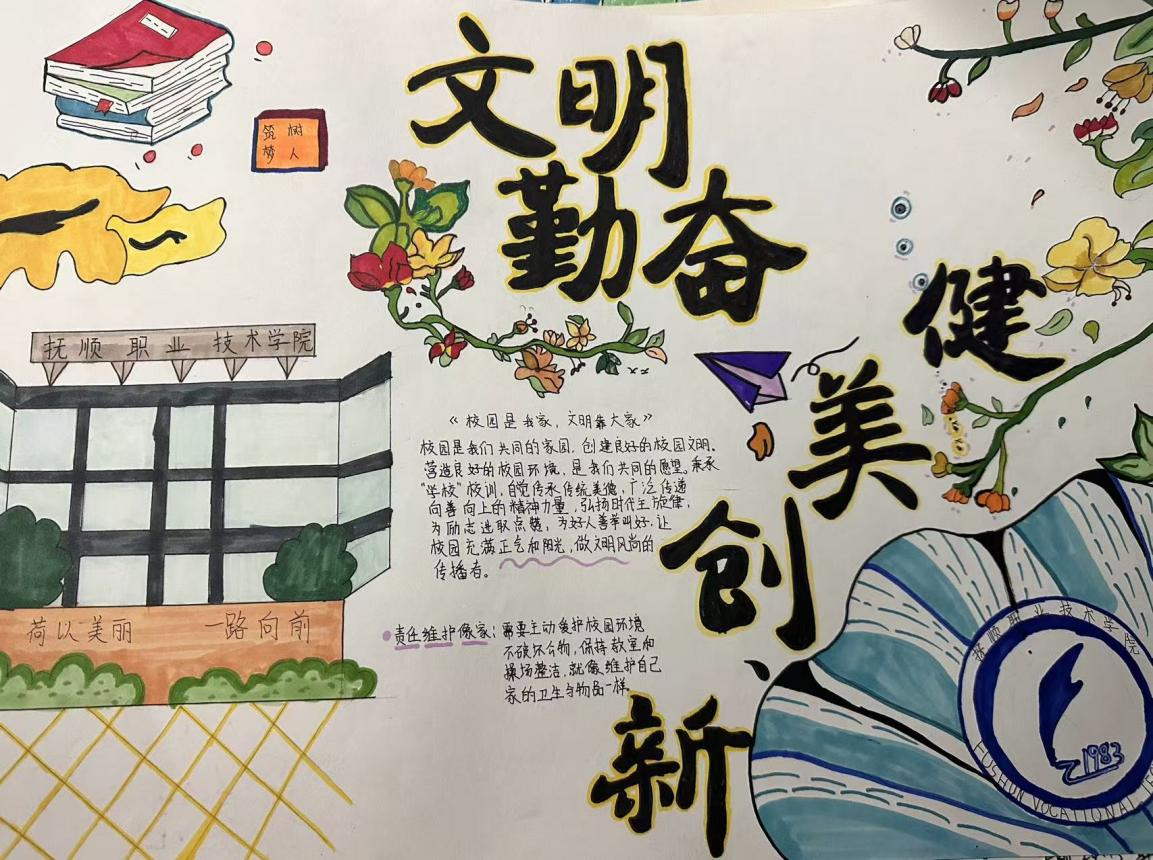 文明
勤奋
健
美
创
新
筑 树
梦 人
抚顺职业技术学院
荷以美丽 一路向前
《校园是我家，文明靠大家》
校园是我们共同的家园，创建良好的校园文明。
营造良好的校园环境，是我们共同的愿望。秉承
"学校"校训，自觉传承传统美德，广泛传递
向善向上的精神力量，弘扬时代主旋律，
为励志进取点赞，为好人善举叫好，让
校园充满正气和阳光，做文明风尚的
传播者。
责任维护像家：需要主动爱护校园环境
不破坏公物，保持教室和
操场整洁，就像维护自己
家的卫生与物品一样。
抚顺职业技术学院
1983
FUSHUN VOCATIONAL